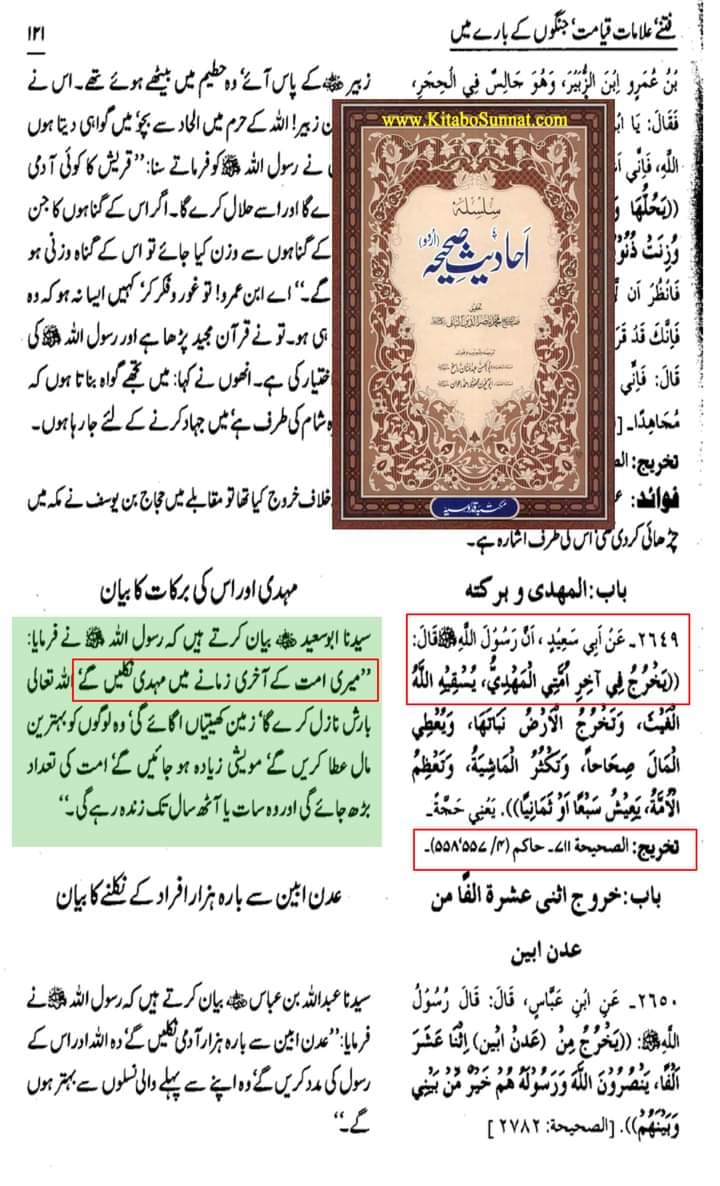 فتنے‘ علامات قیامت‘ جنگوں کے بارے میں
١٢١
بْنُ عُمَرو ابْنَ الزُّبَيْرِ، وَهُوَ جَالِسٌ فِي الْحِجَرِ،
فَقَالَ: يَا
اللّٰهِ، فَإِنِّي
((يُحِلُّهَا
وُزِنَتْ
فَانْظُرْ أَن
فَإِنَّكَ قَدْ
قَالَ: فَإِنِّي
مُجَاهِدًا۔ [
تخریج:
فوائد:
چڑھائی کر دی تھی اس کی طرف اشارہ ہے۔
زبیر رضی اللہ عنہ کے پاس آئے‘ وہ حطیم میں بیٹھے ہوئے تھے۔ اس نے
ن زبیر! اللہ کے حرم میں الحاد سے بچو‘ میں گواہی دیتا ہوں
نے رسول اللہ ﷺ کو فرماتے سنا: ’’قریش کا کوئی آدمی
ے گا اور اسے حلال کرے گا۔ اگر اس کے گناہوں کا جن
کے گناہوں سے وزن کیا جائے تو اس کے گناہ وزنی ہو
گے۔‘‘ اے ابن عمرو! تو غور و فکر کر‘ کہیں ایسا نہ ہو کہ وہ
ہی ہو۔ تو نے قرآن مجید پڑھا ہے اور رسول اللہ ﷺ کی
ختیار کی ہے۔ انھوں نے کہا: میں تجھے گواہ بناتا ہوں کہ
ہ شام کی طرف ہے‘ میں جہاد کرنے کے لئے جا رہا ہوں۔
خلاف خروج کیا تھا تو مقابلے میں حجاج بن یوسف نے مکہ میں
www.KitaboSunnat.com
سلسلہ
احادیث صحیحہ (اردو)
مکتبہ قدوسیہ
باب: المهدي و بركته
٢٦٤٩۔ عَنْ أَبِي سَعِيْدٍ، أَنَّ رَسُوْلَ اللّٰهِ ﷺ قَالَ:
((يَخْرُجُ فِي آخِرِ أُمَّتِي الْمَهْدِيُّ، يُسْقِيْهِ اللّٰهُ
الْغَيْثَ، وَتُخْرُجُ الْأَرْضُ نَبَاتَهَا، وَيُعْطِي
الْمَالَ صِحَاحاً، وَتَكْثُرُ الْمَاشِيَةُ، وَتَعْظُمُ
الْأُمَّةُ، يَعِيْشُ سَبْعًا أَوْ ثَمَانِيًا)). يَعْنِي حَجَّةً۔
تخریج: الصحیحة ٧١١۔ حاکم (٤/ ٥٥٧‘ ٥٥٨)۔
مہدی اور اس کی برکات کا بیان
سیدنا ابو سعید رضی اللہ عنہ بیان کرتے ہیں کہ رسول اللہ ﷺ نے فرمایا:
’’میری امت کے آخری زمانے میں مہدی نکلیں گے‘ اللہ تعالی
بارش نازل کرے گا‘ زمین کھیتیاں اگائے گی‘ وہ لوگوں کو بہترین
مال عطا کریں گے‘ مویشی زیادہ ہو جائیں گے‘ امت کی تعداد
بڑھ جائے گی اور وہ سات یا آٹھ سال تک زندہ رہے گی۔‘‘
باب: خروج اثنی عشرة الفًا من
عدن ابین
٢٦٥٠۔ عَنِ ابْنِ عَبَّاسٍ، قَالَ: قَالَ رَسُوْلُ
اللّٰهِ ﷺ: ((يَخْرُجُ مِنْ (عَدْنِ ابين) اِثْنَا عَشَرَ
أَلْفًا، يَنْصُرُوْنَ اللّٰهَ وَرَسُوْلَهُ هُمْ خَيْرٌ مَّنْ بَيْنِي
وَبَيْنَهُمْ)). [الصحیحة: ٢٧٨٢]
عدن ابین سے بارہ ہزار افراد کے نکلنے کا بیان
سیدنا عبداللہ بن عباس رضی اللہ عنہ بیان کرتے ہیں کہ رسول اللہ ﷺ نے
فرمایا: ’’عدن ابین سے بارہ ہزار آدمی نکلیں گے‘ وہ اللہ اور اس کے
رسول کی مدد کریں گے‘ وہ اپنے سے پہلے والی نسلوں سے بہتر ہوں
گے۔‘‘